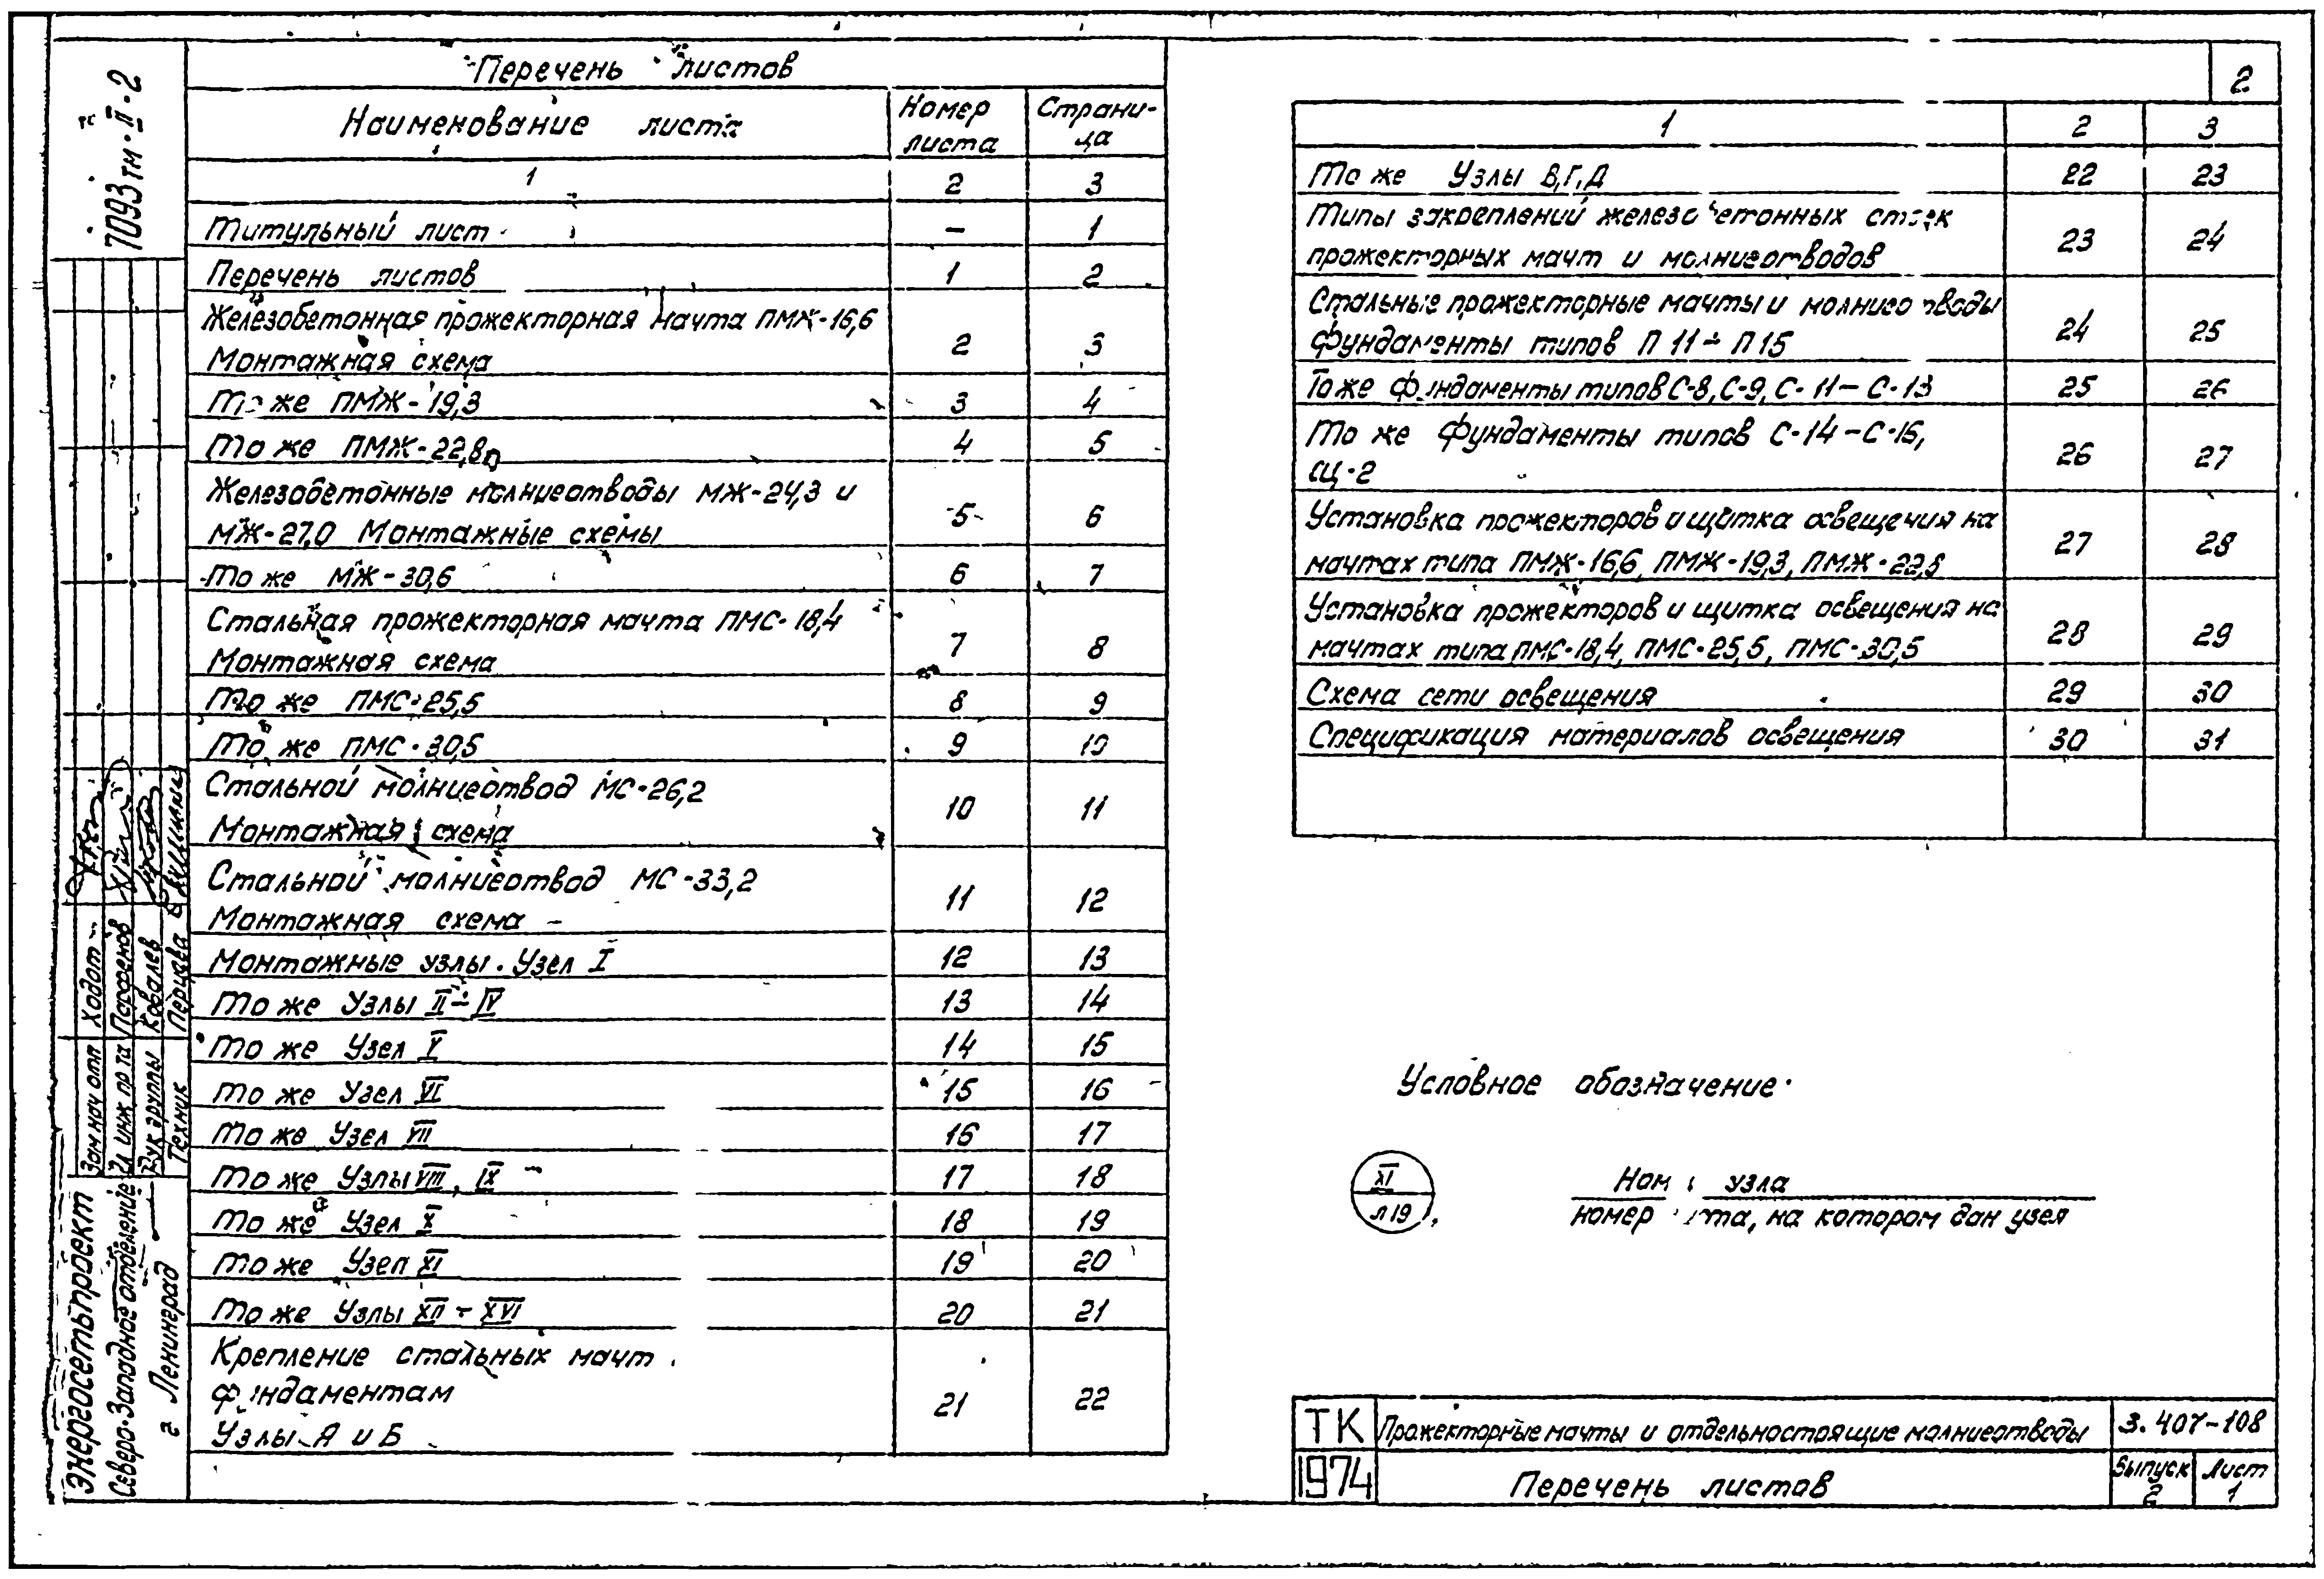 Перечень листов
Наименование листа Номер листа Страни-ца
1 2 3
Титульный лист – 1
Перечень листов 1 2
Железобетонная прожекторная мачта ПМЖ-16,6
Монтажная схема 2 3
То же ПМЖ-19,3 3 4
То же ПМЖ-22,8 4 5
Железобетонные молниеотводы МЖ-24,3 и
МЖ-27,0 Монтажные схемы 5 6
То же МЖ-30,6 6 7
Стальная прожекторная мачта ПМС-18,4
Монтажная схема 7 8
То же ПМС-25,5 8 9
То же ПМС-30,5 9 10
Стальной молниеотвод МС-26,2
Монтажная схема 10 11
Стальной молниеотвод МС-33,2
Монтажная схема 11 12
Монтажные узлы. Узел I 12 13
То же Узлы II÷IV 13 14
То же Узел V 14 15
То же Узел VI 15 16
То же Узел VII 16 17
То же Узлы VIII, IX 17 18
То же Узел X 18 19
То же Узел XI 19 20
То же Узлы XII ÷ XVI 20 21
Крепление стальных мачт
фундаментам
Узлы А и Б 21 22
2
1 2 3
То же Узлы В,Г,Д 22 23
Типы закреплений железобетонных стоек
прожекторных мачт и молниеотводов 23 24
Стальные прожекторные мачты и молниеотводы
фундаменты типов П 11 ÷ П 15 24 25
То же фундаменты типов С-8, С-9, С-11 – С-13 25 26
То же фундаменты типов С-14 – С-16,
СЦ-2 26 27
Установка прожекторов и щитка освещения на
мачтах типа ПМЖ-16,6, ПМЖ-19,3, ПМЖ-22,8 27 28
Установка прожекторов и щитка освещения на
мачтах типа ПМС-18,4, ПМС-25,5, ПМС-30,5 28 29
Схема сети освещения 29 30
Спецификация материалов освещения 30 31
Условное обозначение
XI
л 19
узла
номер на котором дан узел
ТК Прожекторные мачты и отдельностоящие молниеотводы 3.407-108
1974 Перечень листов Выпуск 2 Лист 1
7093тм-II-2
Зам нач отп Ходот
Гл инж пр та Парфенов
Рук группы Ковалев
Техник Перцева
Энергосетьпроект
Северо-Западное отделение
г Ленинград